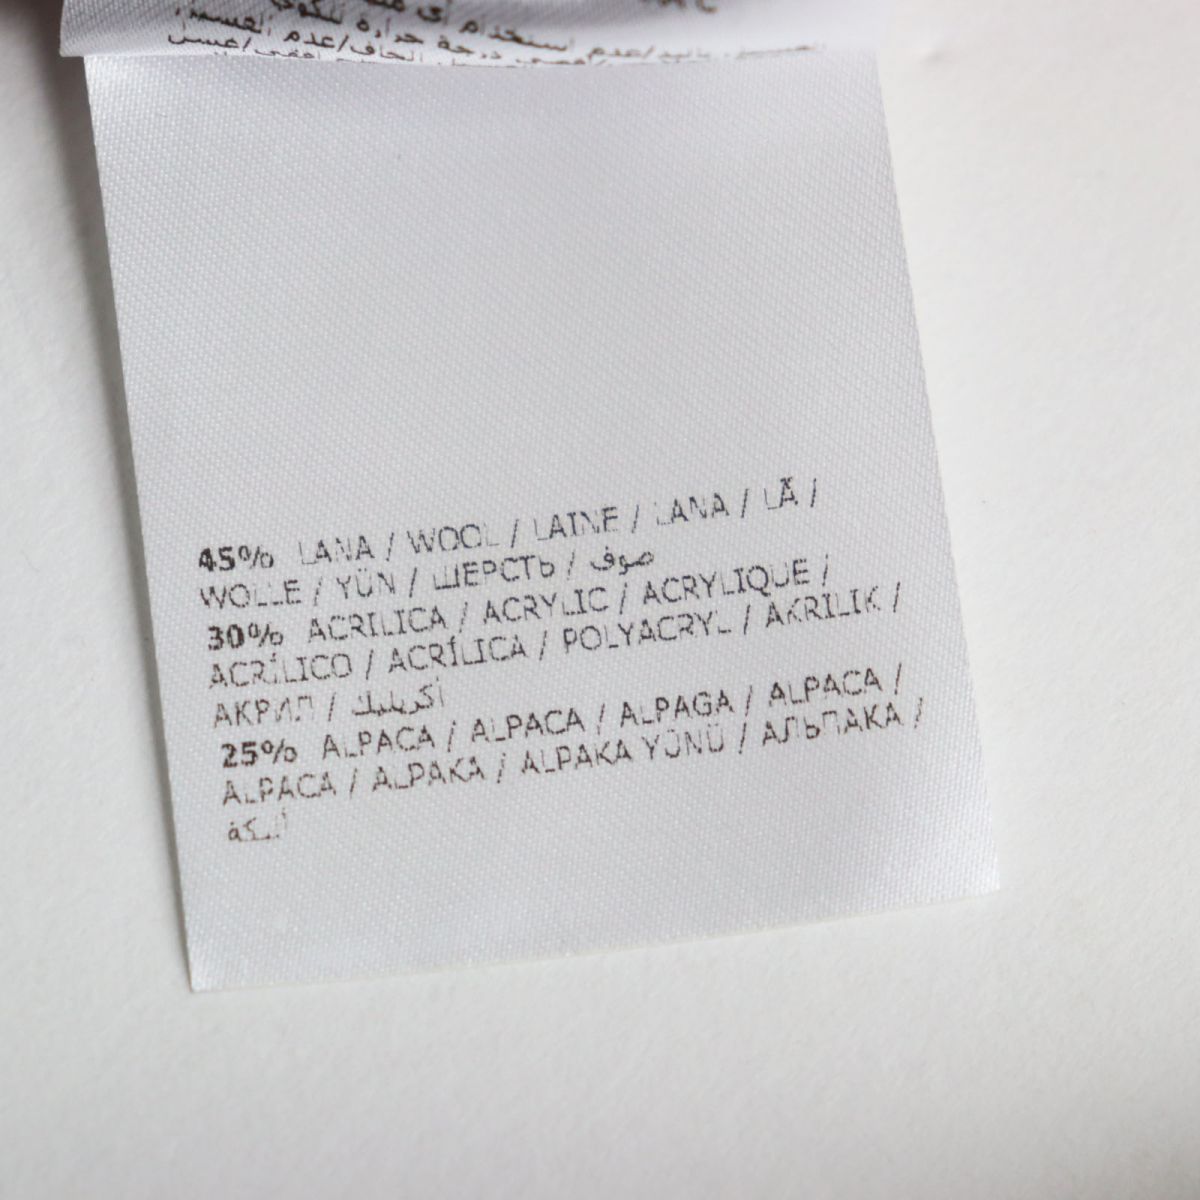 45% LANA / WOOL / LAINE / LANA / LÃ /
WOLLE / YÜN / ШЕРСТЬ / صوف
30% ACRILICA / ACRYLIC / ACRYLIQUE /
ACRÍLICO / ACRÍLICA / POLYACRYL / AKRİLİK /
АКРИЛ / أكريليك
25% ALPACA / ALPACA / ALPAGA / ALPACA /
ALPACA / ALPAKA / ALPAKA YÜNÜ / АЛЬПАКА /
ألبكة